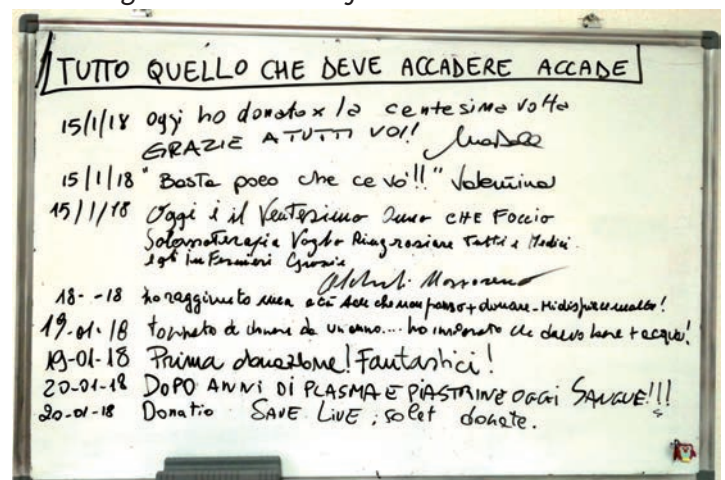 TUTTO QUELLO CHE DEVE ACCADERE ACCADE
15/1/18 Oggi ho donato x la centesima volta
GRAZIE A TUTTI VOI!
15/1/18 "Basta poco che ce vò!!" Valentina
15/1/18 Oggi è il Ventesimo Anno CHE Faccio
Salassoterapia Voglio Ringraziare Tutti i Medici
e gli infermieri Grazie
18- -18 ho raggiunto una età che non posso + donare. Mi dispiace molto!
19-01-18 torneto di donare da un anno... ho imparato che devo bere + acqua!
19-01-18 Prima donazione! Fantastici!
20-01-18 DOPO ANNI DI PLASMA E PIASTRINE OGGI SANGUE!!!
20-01-18 Donatio SAVE LIVE; solet donate.